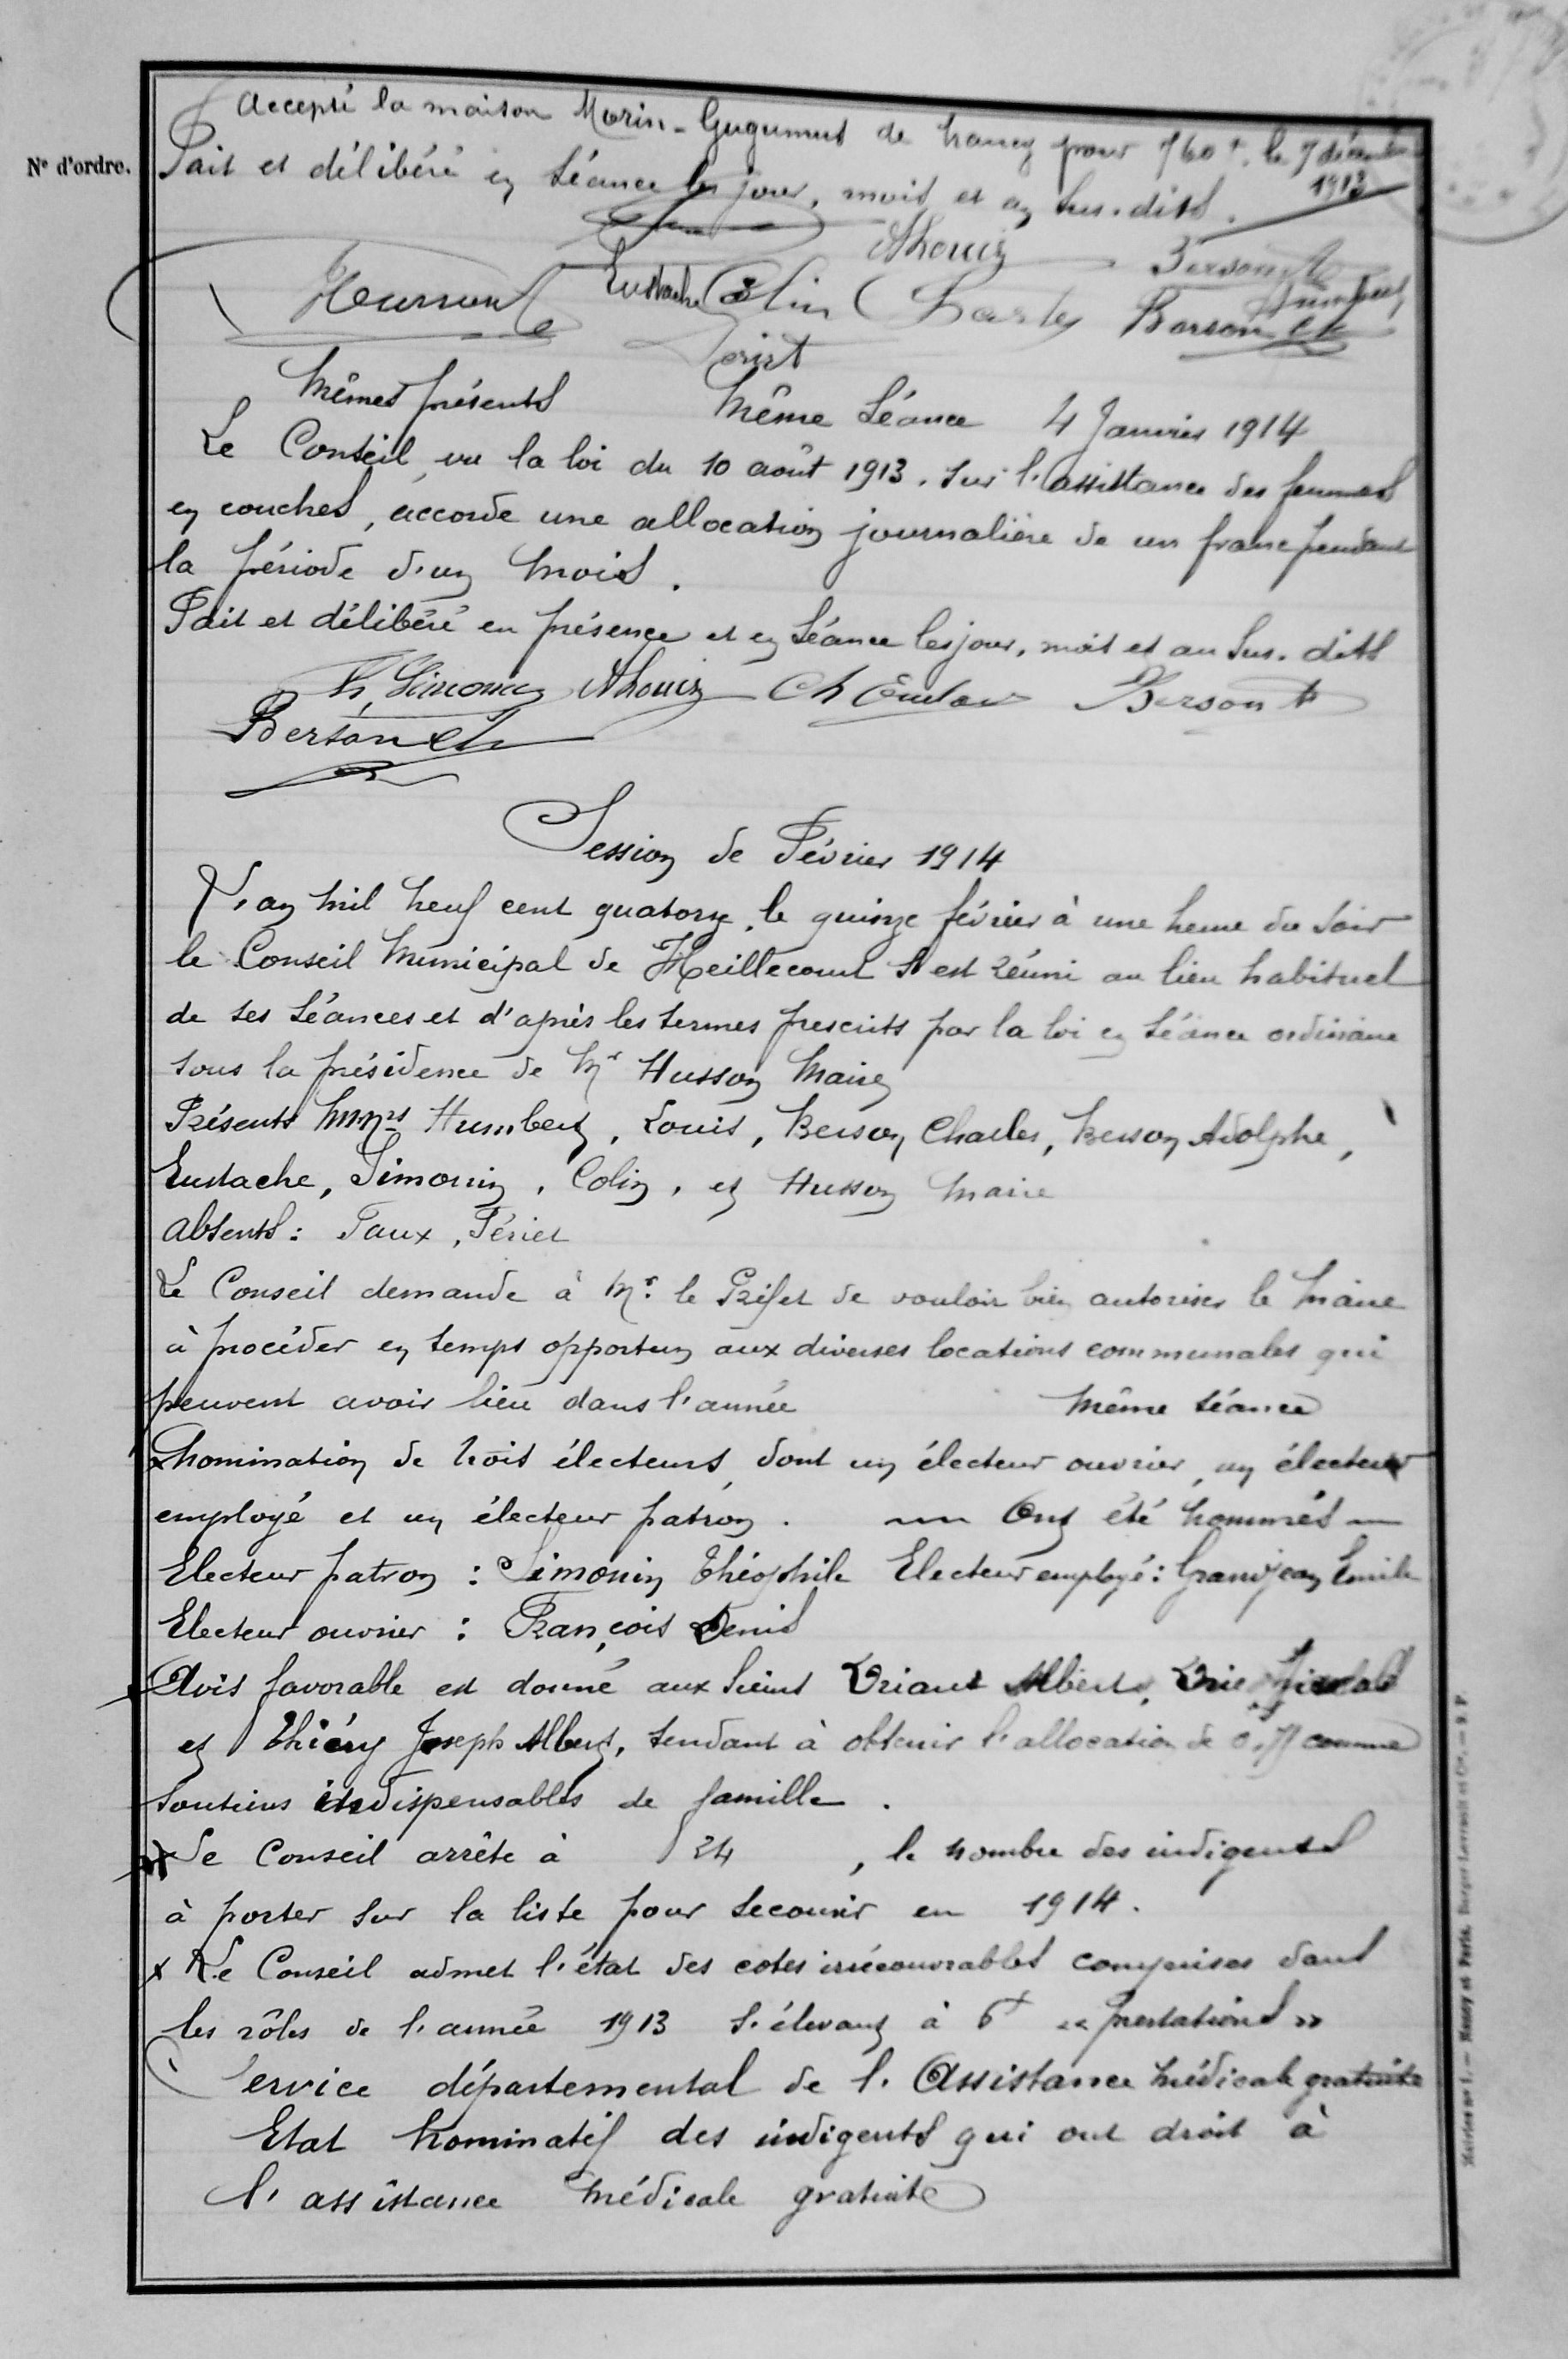 Accepté la maison Morin-Gugumus de Nancy pour 760 f. le 7 décembre
1913
N° d'ordre.
Fait et délibéré en séance les jour, mois et an sus-dits.
ALouis
Berson A
Husson Eustache Colin Charles Berson Ch
Humbert
Feriet
Mêmes présents Même Séance 4 Janvier 1914
Le Conseil, vu la loi du 10 août 1913. sur l'assistance des femmes
en couches, accorde une allocation journalière de un franc pendant
la période d'un mois.
Fait et délibéré en présence et en séance les jour, mois et an sus-dits
Th. Simonin ALouis Ch Berson A
Berson Ch
Session de Février 1914
L'an mil neuf cent quatorze, le quinze février à une heure du soir
le Conseil Municipal de Heillecourt s'est réuni au lieu habituel
de ses séances et d'après les termes prescrits par la loi en séance ordinaire
sous la présidence de Mr Husson Maire
Présents MMrs Humbert, Louis, Berson Charles, Berson Adolphe,
Eustache, Simonin, Colin, et Husson Maire
Absents : Faux, Fériet
Le Conseil demande à Mr. le Préfet de vouloir bien autoriser le Maire
à procéder en temps opportun aux diverses locations communales qui
peuvent avoir lieu dans l'année Même séance
x Nomination de trois électeurs, dont un électeur ouvrier, un électeur
employé et un électeur patron. — Ont été nommés —
Electeur patron : Simonin Théophile Electeur employé : Grandjean Emile
Electeur ouvrier : François Denis
Avis favorable est donné aux sieurs Briant Albert,
et Thiéry Joseph Albert, tendant à obtenir l'allocation de comme
soutiens indispensables de famille.
x Le Conseil arrête à 24, le nombre des indigents
à porter sur la liste pour secourir en 1914.
x Le Conseil admet l'état des cotes irrécouvrables comprises dans
les rôles de l'année 1913 s'élevant à 6 f « prestations »
Service départemental de l'Assistance médicale gratuite
Etat nominatif des indigents qui ont droit à
l'assistance médicale gratuite